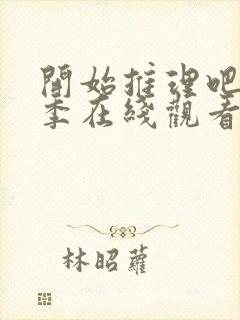 開始推理吧
季在綫觀看
林昭蘿